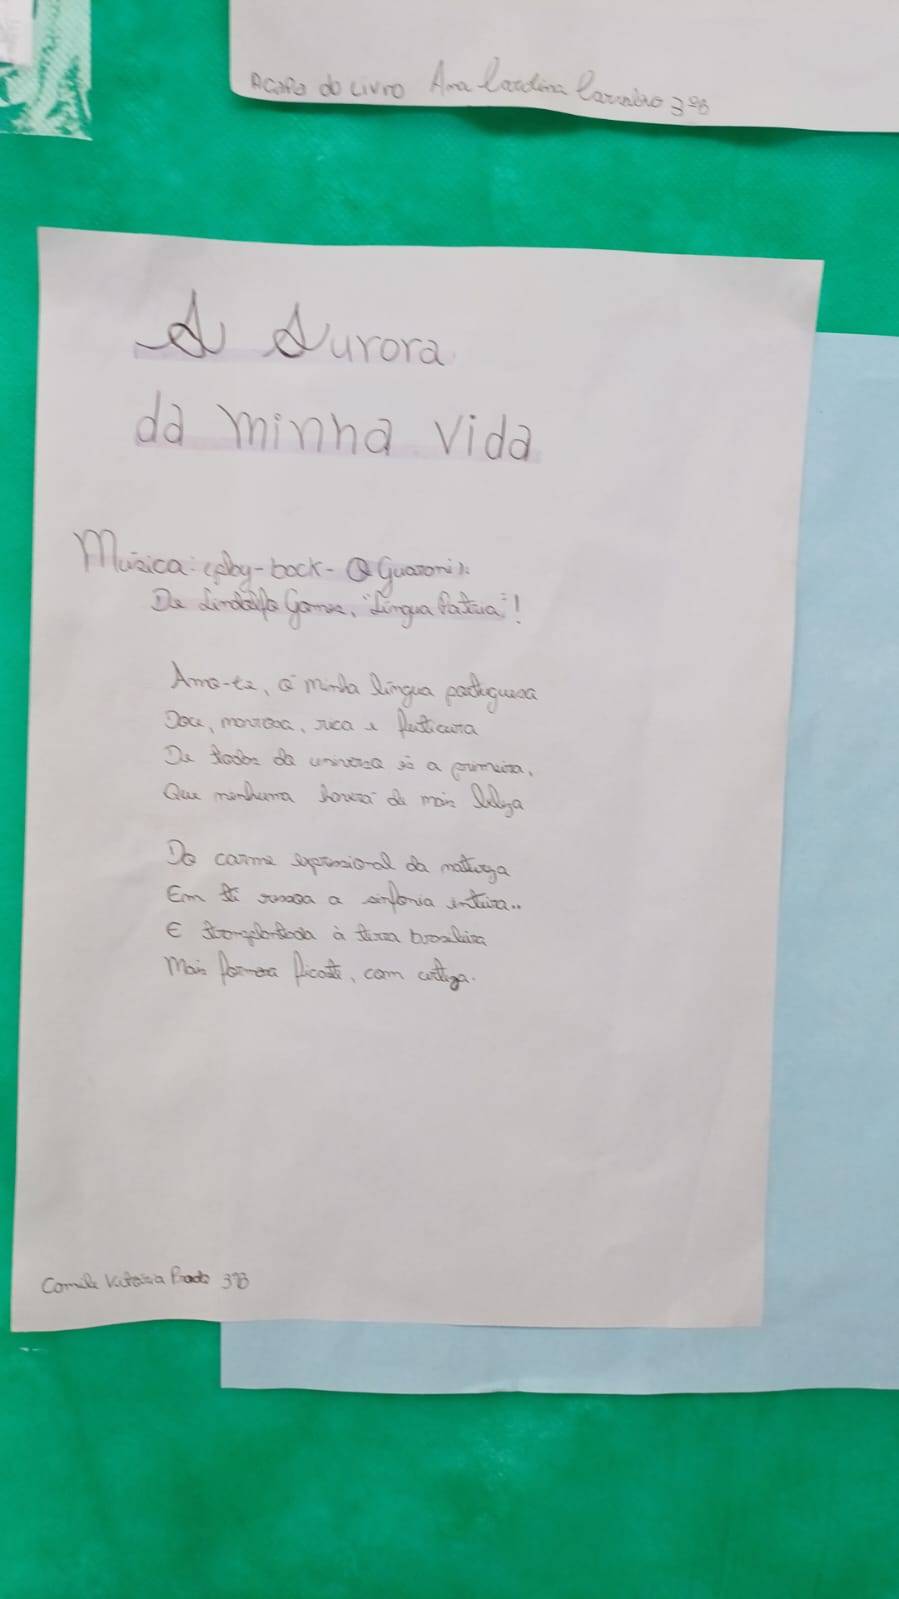 A CAPA do Livro Ana Carolina Carneiro 3ºB
A Aurora
da minha vida
Música: (play-back- O Guarani):
De Lindolfo Gomes, "Língua Pátria"!
Amo-te, ó minha língua portuguesa
Doce, maviosa, rica e feiticeira
De todas do universo és a primeira,
Que nenhuma haverá de mais beleza
Do carme expressional da natureza
Em ti ressoa a sinfonia inteira..
E transplantada à terra brasileira
Mais formosa ficaste, com certeza.
Camila Victória Prado 3ºB